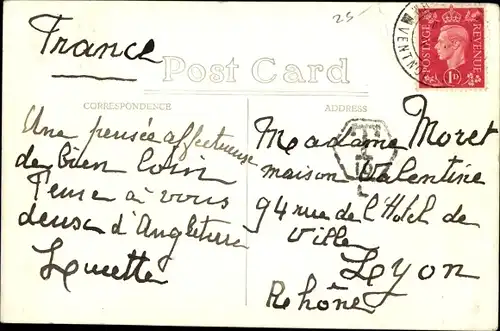 25-
France
Post Card
CORRESPONDENCE
ADDRESS
POSTAGE
REVENUE
1D
VENTN
T
Une pensée affectueuse
de bien loin
Pense à vous
deux d'Angleterre
Lucette
Madame Moret
maison Valentine
94 rue de l'Hotel de
Ville
Lyon
Rhône